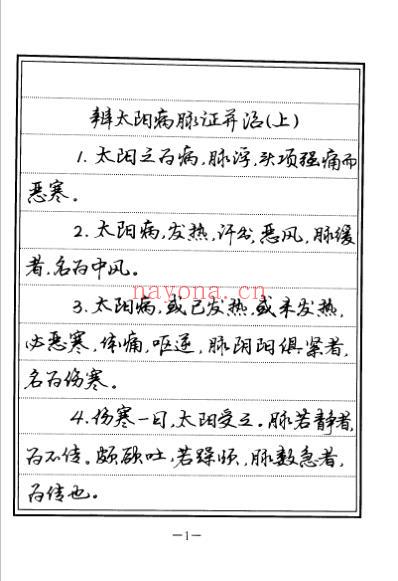 辨太阳病脉证并治(上)
1. 太阳之为病,脉浮,头项强痛而
恶寒。
2. 太阳病,发热,汗出,恶风,脉缓
者,名为中风。
nayona.cn
3. 太阳病,或已发热,或未发热,
必恶寒,体痛,呕逆,脉阴阳俱紧者,
名为伤寒。
4. 伤寒一日,太阳受之。脉若静者,
为不传。颇欲吐,若躁烦,脉数急者,
为传也。
—1—